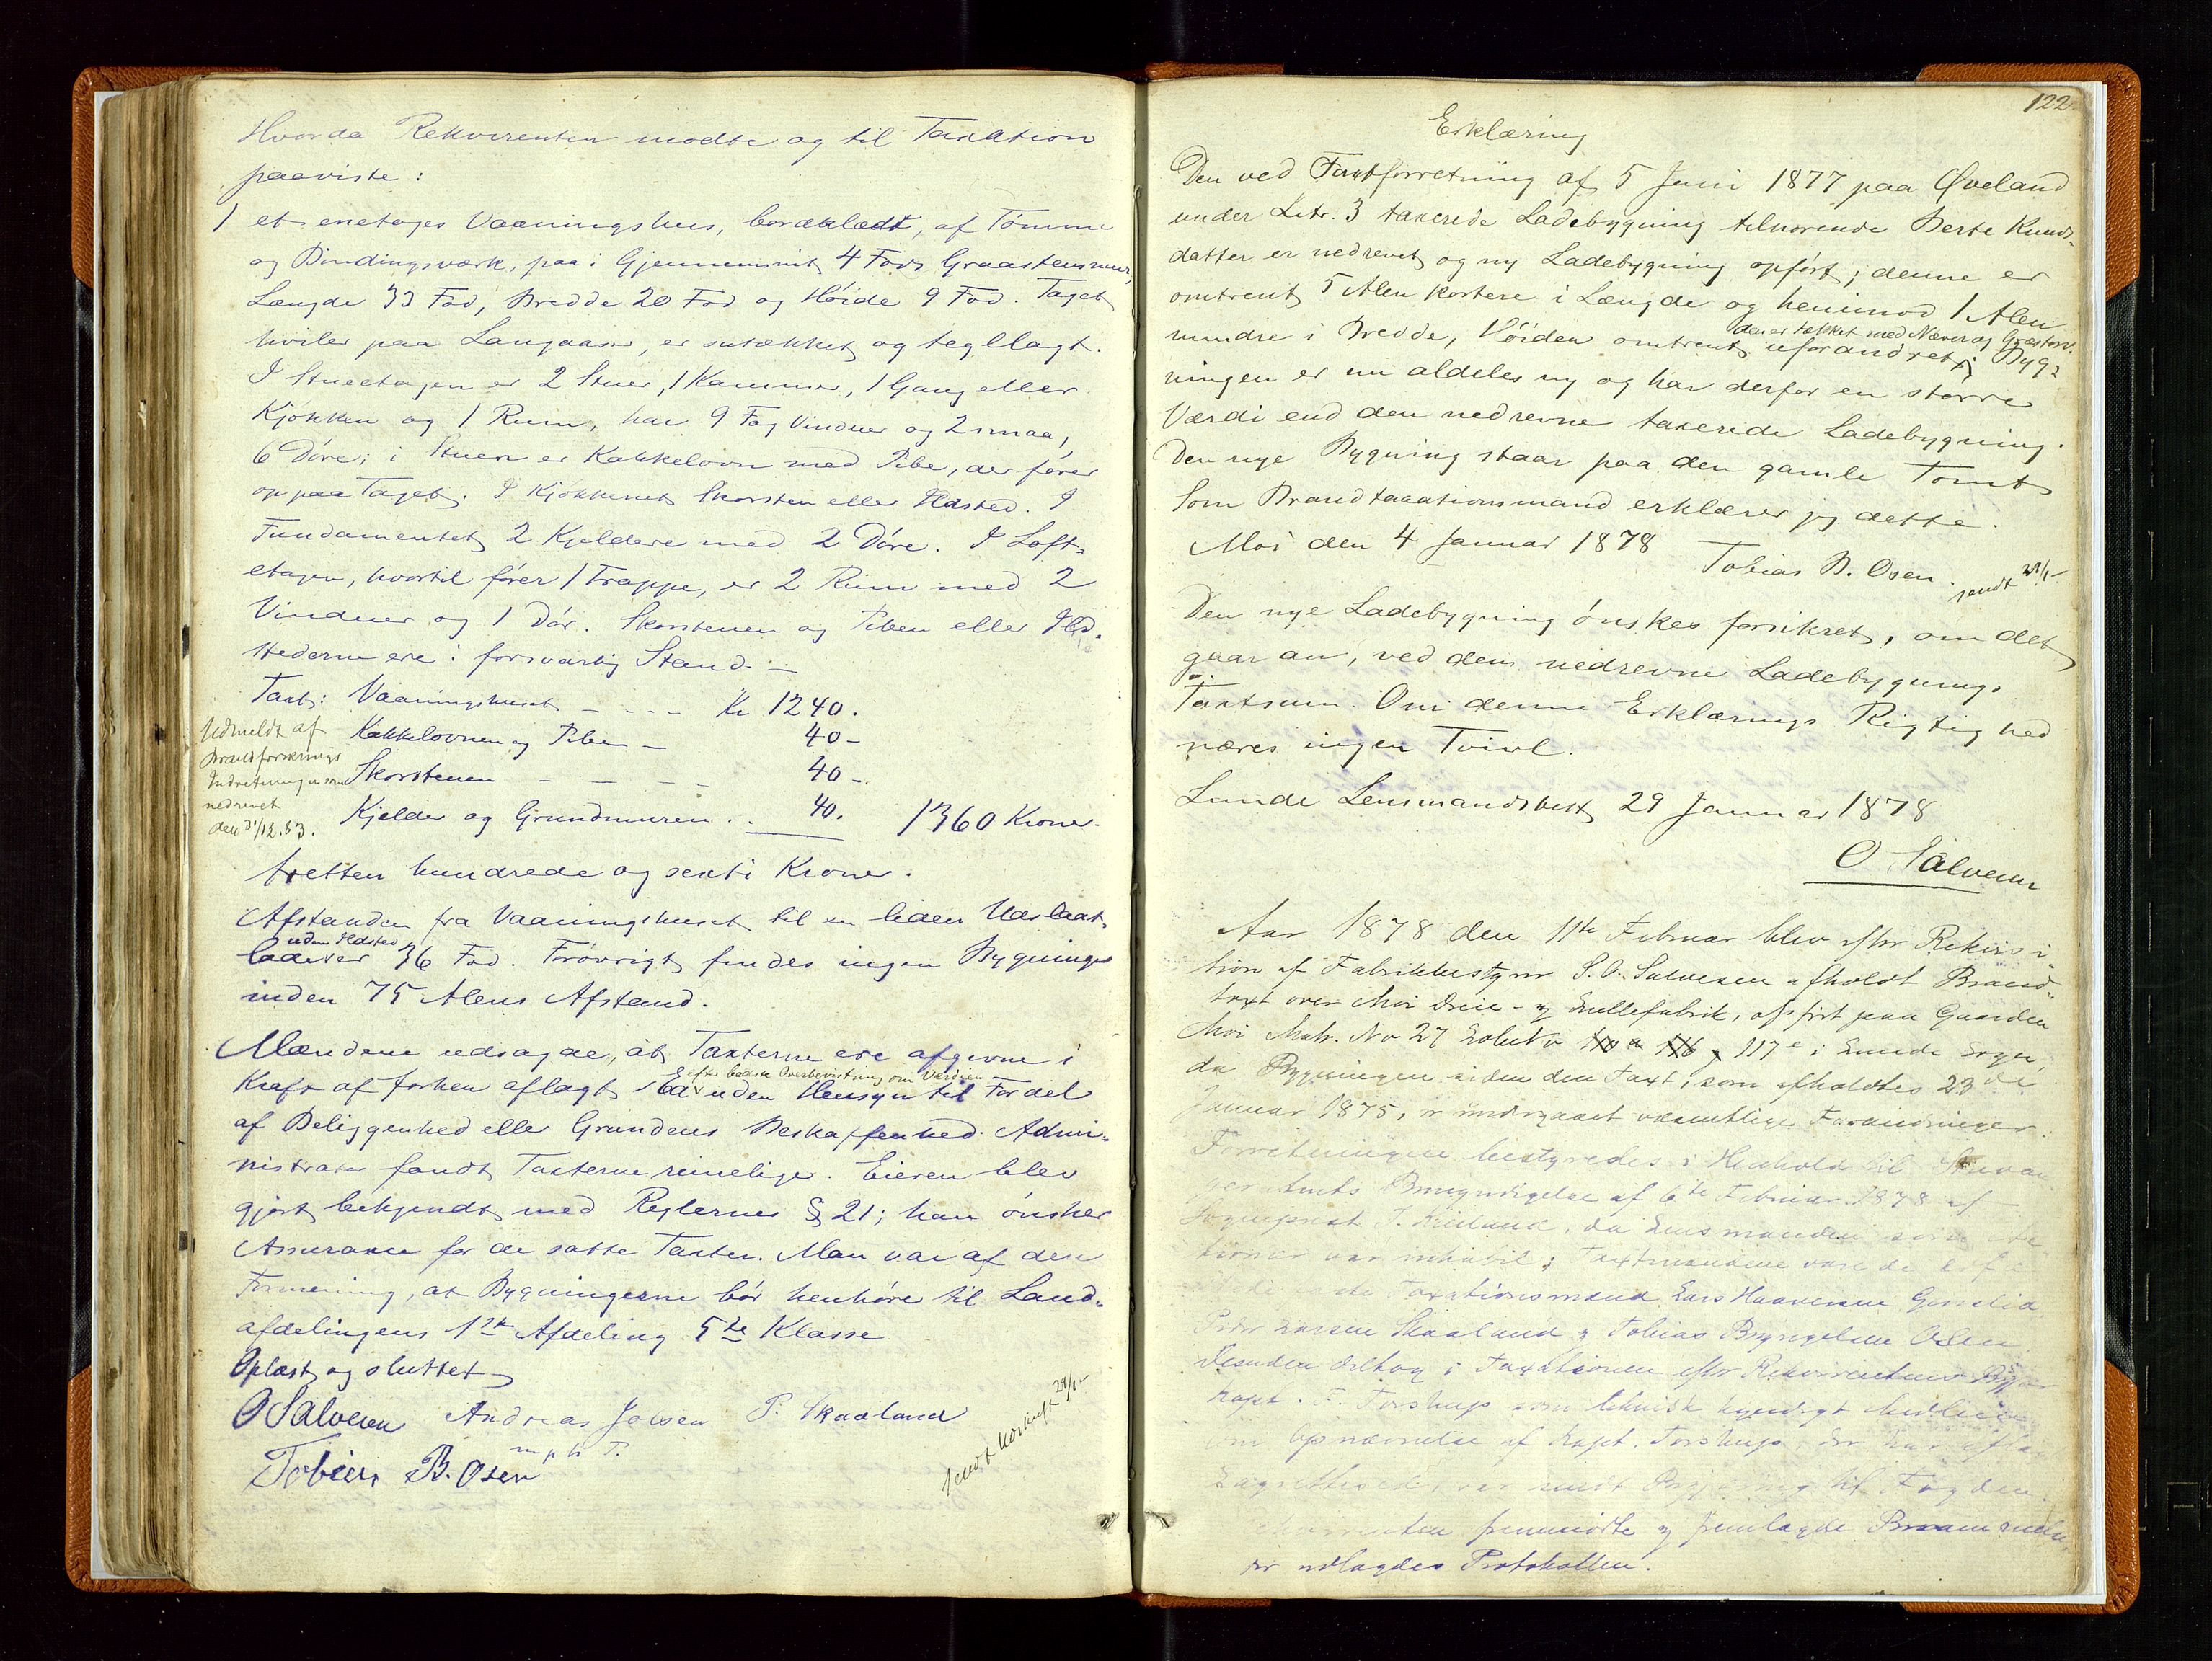 Hvorda Rekvirenten mødte og til Taxation
paaviste:
1 et enetages Vaaningshus, bordklædt, af Tømmer
og Bindingsværk, paa i Gjennemsnit 4 Fods Graastensmur,
Længde 33 Fod, Bredde 20 Fod og Høide 9 Fod. Taget
hviler paa Langaaser, er sutækket og tegllagt.
I Stueetagen er 2 Stuer, 1 Kammer, 1 Gang eller
Kjøkken og 1 Rum, har 9 Fag Vinduer og 2 smaa,
6 Døre; i Stuen er Kakkelovn med Pibe, der fører
op paa Taget. I Kjøkkenet Skorsten eller Ildsted. I
Fundamentet 2 Kjeldere med 2 Døre. I Loft-
etagen, hvortil fører 1 Trappe, er 2 Rum med 2
Vinduer og 1 Dør. Skorstenen og Piben eller Ild-
stederne ere i forsvarlig Stand. –
Taxt: Vaaningshuset – – – – Kr 1240.
Kakkelovnen og Piben – 40 –
Skorstenen – – – – 40 –
Kjelder og Grundmuren . . 40. 1360 Kroner.
Udmeldt af
Brandforsikrings
Indretningen som
nedrevet
den 31/12.83.
tretten hundrede og sexti Kroner.
Afstanden fra Vaaningshuset til en liden Udslaat-
lade uden Ildsted er 36 Fod. Forøvrigt findes ingen Bygninger
inden 75 Alens Afstand.
Mændene udsagde, at Taxterne ere afgivne i
Kraft af forhen aflagt Ed efter bedste Overbevisning om Værdien uden Hensyn til Fordel
af Beliggenhed eller Grundens Beskaffenhed. Admi-
nistrator fandt Taxterne rimelige. Eieren blev
gjort bekjendt med Reglernes § 21; han ønsker
Assurance for de satte Taxter. Man var af den
Formening, at Bygningerne bør henhøre til Land-
afdelingens 1ste Afdeling 5te Klasse
Oplæst og sluttet
O Salvesen Andreas Josen P. Skaaland
Tobias B. Osen m p h P.
sendt 29/1
122
Erklæring
Den ved Taxtforretning af 5 Juni 1877 paa Øveland
under Litr. 3 taxerede Ladebygning tilhørende Berte Knuds-
datter er nedrevet og ny Ladebygning opført; denne er
omtrent 5 Alen kortere i Længde og henimod 1 Alen
mindre i Bredde, Høiden omtrent uforandret; den er tækket med Næver og Græstorv. Byg-
ningen er nu aldeles ny og har derfor en større
Værdi end den nedrevne taxerede Ladebygning.
Den nye Bygning staar paa den gamle Tomt
Som Brandtaxationsmand erklærer jeg dette.
Moi den 4 Januar 1878
Tobias B. Osen.
sendt 29/1
Den nye Ladebygning ønskes forsikret, om det
gaar an, ved den nedrevne Ladebygnings
Taxtsum. Om denne Erklærings Rigtighed
næres ingen Tvivl.
Lunde Lensmandsbest 29 Januar 1878
O Salvesen
Aar 1878 den 11te Februar blev efter Rekvisi-
tion af Fabrikbestyrer S. O. Salvesen afholdt Brand-
taxt over Moi Dreie- og Snellefabrik, opført paa Gaarden
Moi Matr. No 27 Løb No 117e i Lunde Sogn,
da Bygningen siden den Taxt, som afholdtes 23de
Januar 1875, er undergaaet væsentlige Forandringer.
Forretningen bestyredes i Henhold til Stavan-
ger Amts Bemyndigelse af 6te Februar 1878 af
Sogneprest J. Kielland, da Lensmanden som
var inhabil; Taxtmændene vare de
Taxationsmænd Lars Haavesen Gjesdal
Peder Larsen Skaaland og Tobias Bryngelsen Osen
Desuden deltog i Taxationen efter Rekvirentens
Kapt. F. Torshup som teknisk kyndigt
om Opnævnelse af Kapt. Torshup, der har aflagt
Lagrettesed, var sendt til Fogden.
fremmødte og fremlagde
der vedlagdes Protokollen.